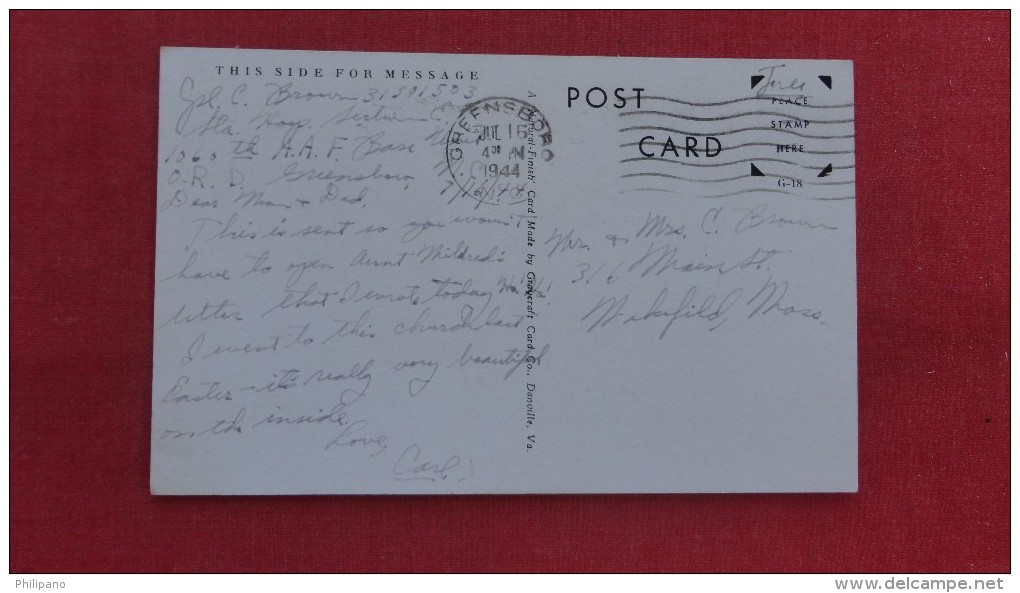 THIS SIDE FOR MESSAGE
C. Brown 31301503
Sta. Hosp. Section C.
1060th A.A.F. Base Unit
O.R.D. Greensboro, N.C.
7/16/44
Dear Mom & Dad,
This is sent so you won't
have to open Aunt Mildred's
letter that I wrote today Ha! Ha!
I went to this church last
Easter - it's really very beautiful
on the inside.
Love,
Carl
GREENSBORO
JUL 16
4 30 PM
1944
N.C.
A "Natural-Finish" Card Made by Graycraft Card Co., Danville, Va.
POST
CARD
Free
PLACE
STAMP
HERE
G-18
Mr. & Mrs. C. Brown
316 Main St.
Wakefield, Mass.
Philipano
www.delcampe.net